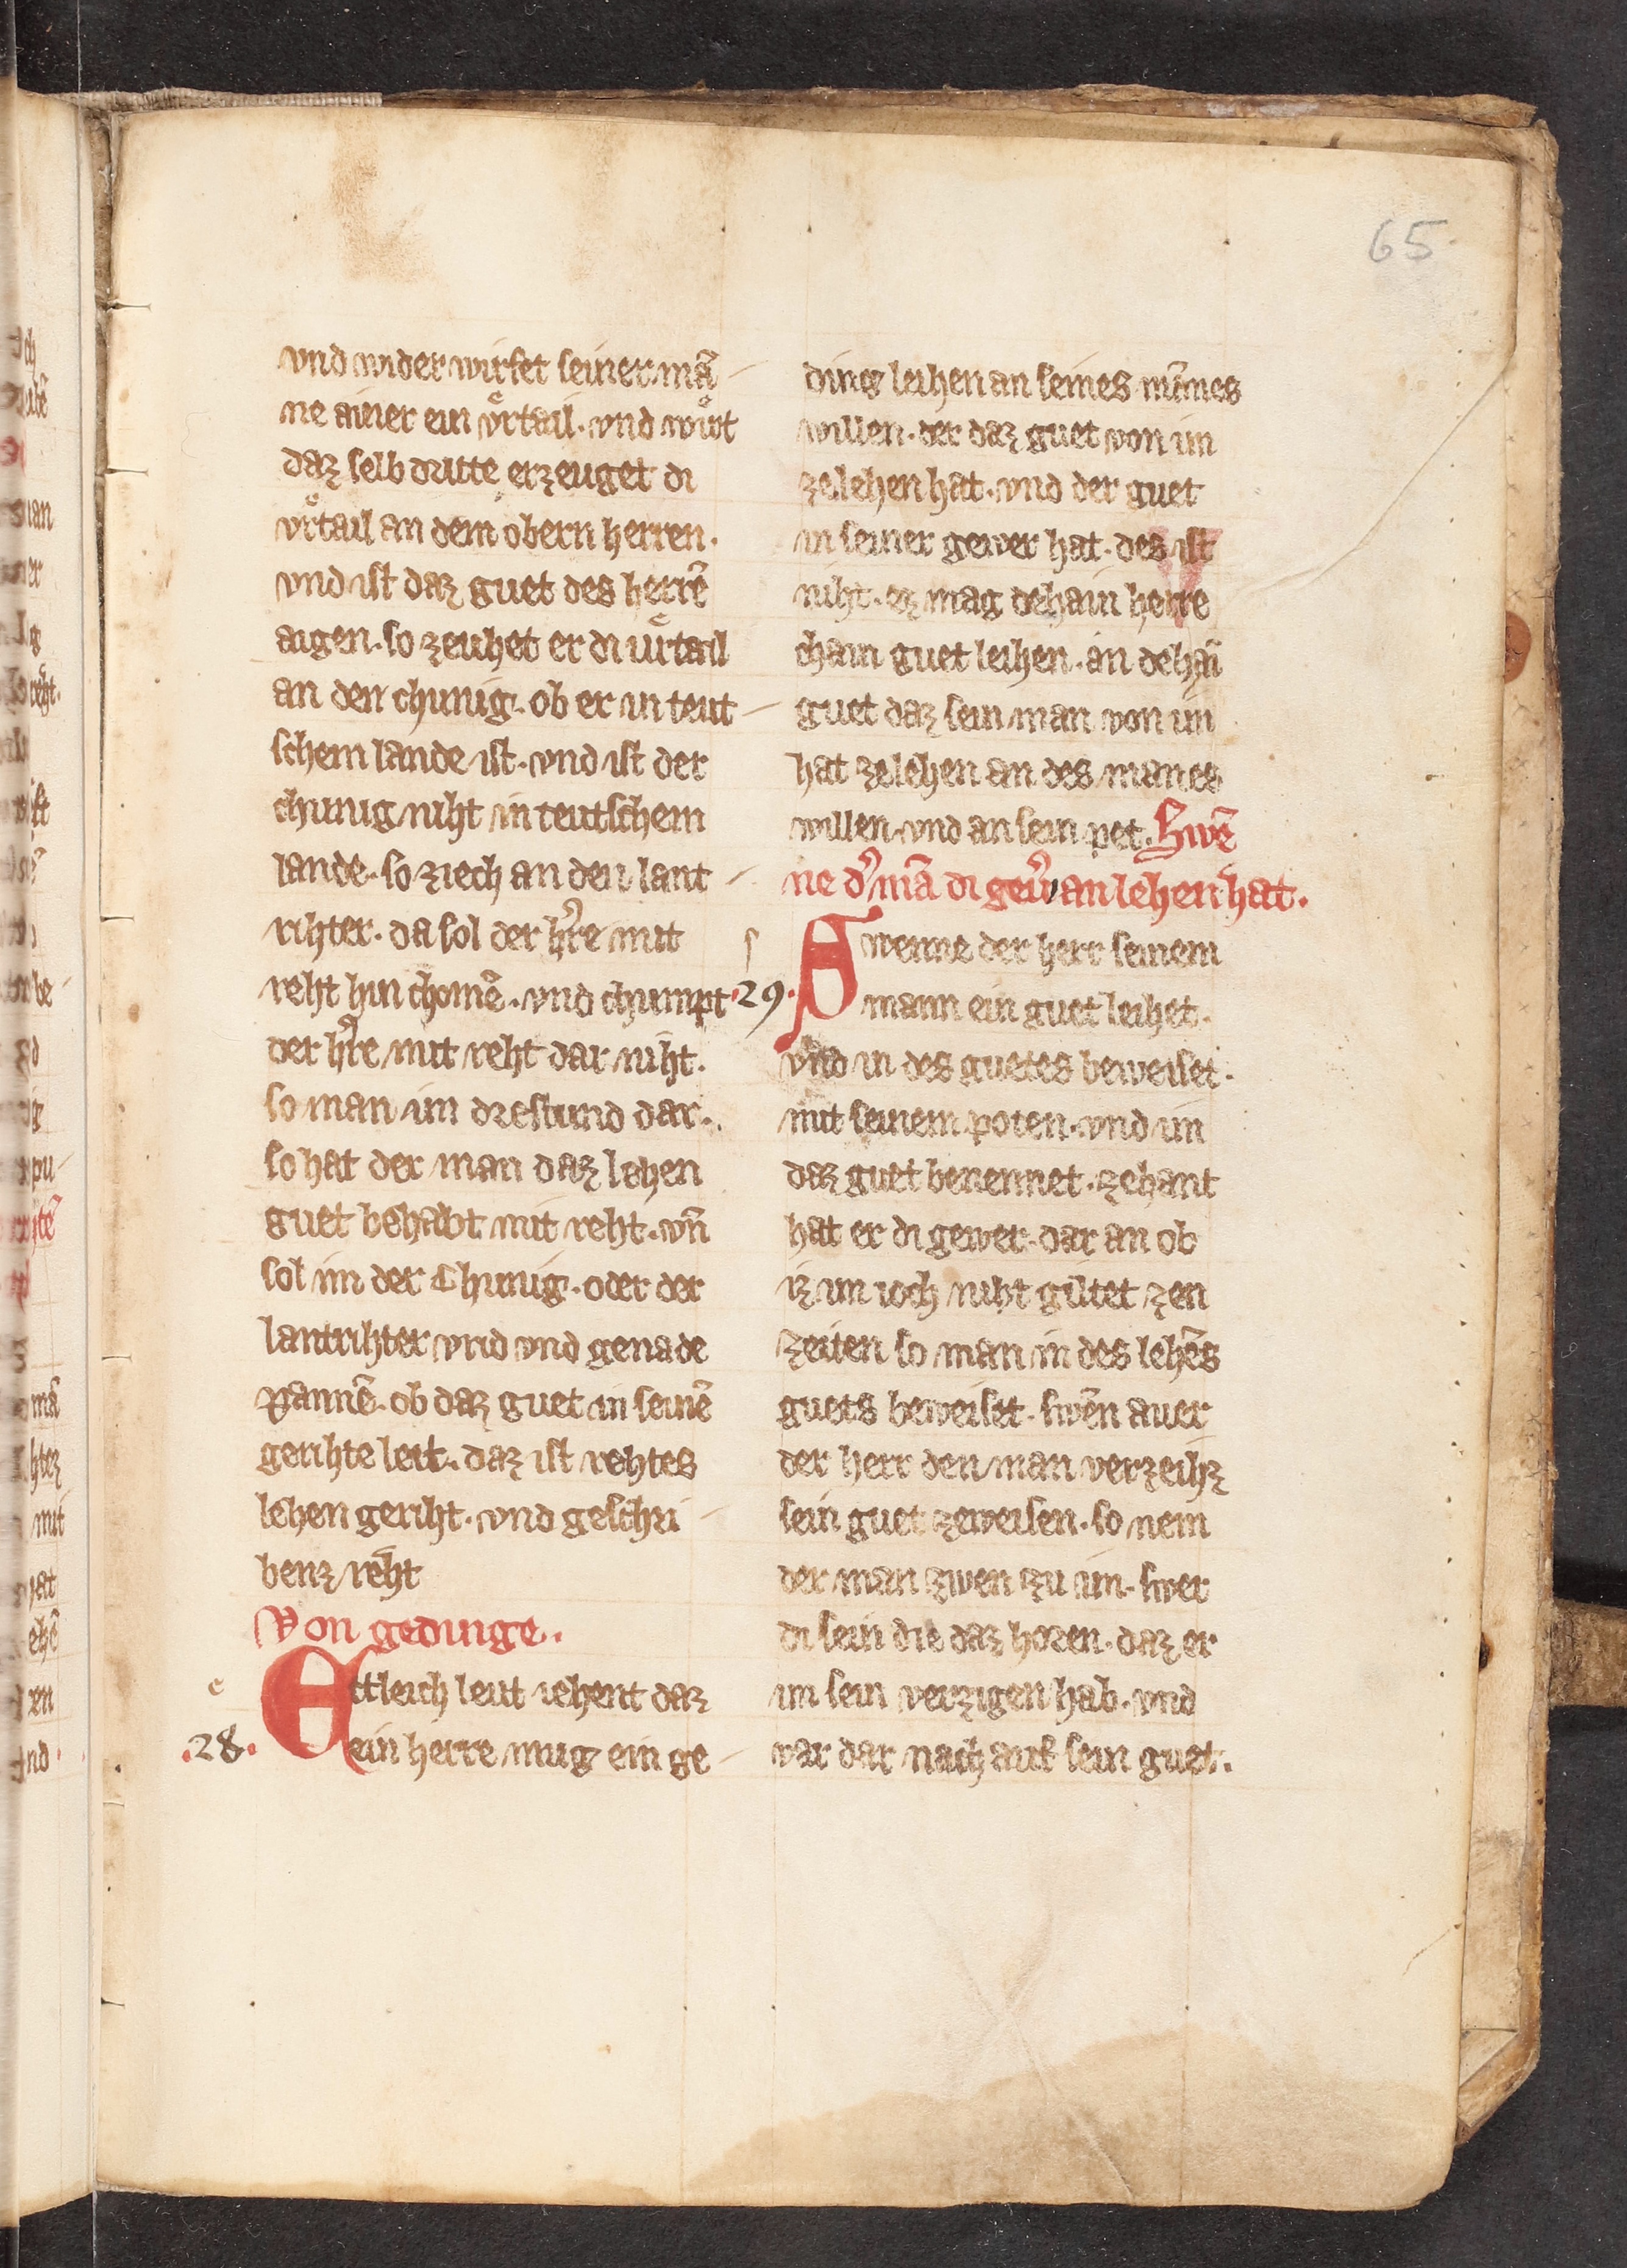 65
vnd wider wirfet seiner mā
ne ainer ein vͤrtail · vnd wiͤrt
daz selb dritte erzeuget di
vͤrtail an dem obern herren ·
vnd ist daz guet des herrē
aigen · so zeuhet er di uͤrtail
an den chunig · ob er in teut
schem lande ist · vnd ist der
chunig niht in teutschem
lande · so ziech an den lant
rihter · da sol der hr̄e mit
reht hin chomē · vnd chumpt
der hr̄e mit reht dar niht ·
so man im drestund dar ·
so hat der man daz lehen
guet behabt mit reht · vn̄
sol im der Chunig · oder der
lantrihter vrid vnd genade
pannē · ob daz guet in seinē
gerihte leit · daz ist rehtes
lehen geriht · vnd geschri
benz reht
Von gedinge ·
e
Etleich leut iehent daz
·28· ein herre mug ein ge
ding leihen an seines mānes
willen · der daz guet von im
zelehen hat · vnd der guet
in seiner gewer hat · des ist
niht · ez mag dehain herre
chain guet leihen · an dehaī
guet daz sein man von im
hat zelehen an des manes
willen · vnd an sein pet · Swē
ne dˀ mā di gewˀ an lehen hat ·
s
Swenne der herr seinem
·29· mann ein guet leihet ·
vnd in des guetes beweiset ·
mit seinem poten · vnd im
daz guet benennet · zehant
hat er di gewer · dar an ob
iz im ioch niht gultet zen
zeiten so man in des lehēs
guets beweiset · swēn auer
der herr den man verzeihz
sein guet zeweisen · so nem
der man zwen zu im · swer
di sein die daz horen · daz er
im sein verzigen hab · vnd
var dar nach auf sein guet ·